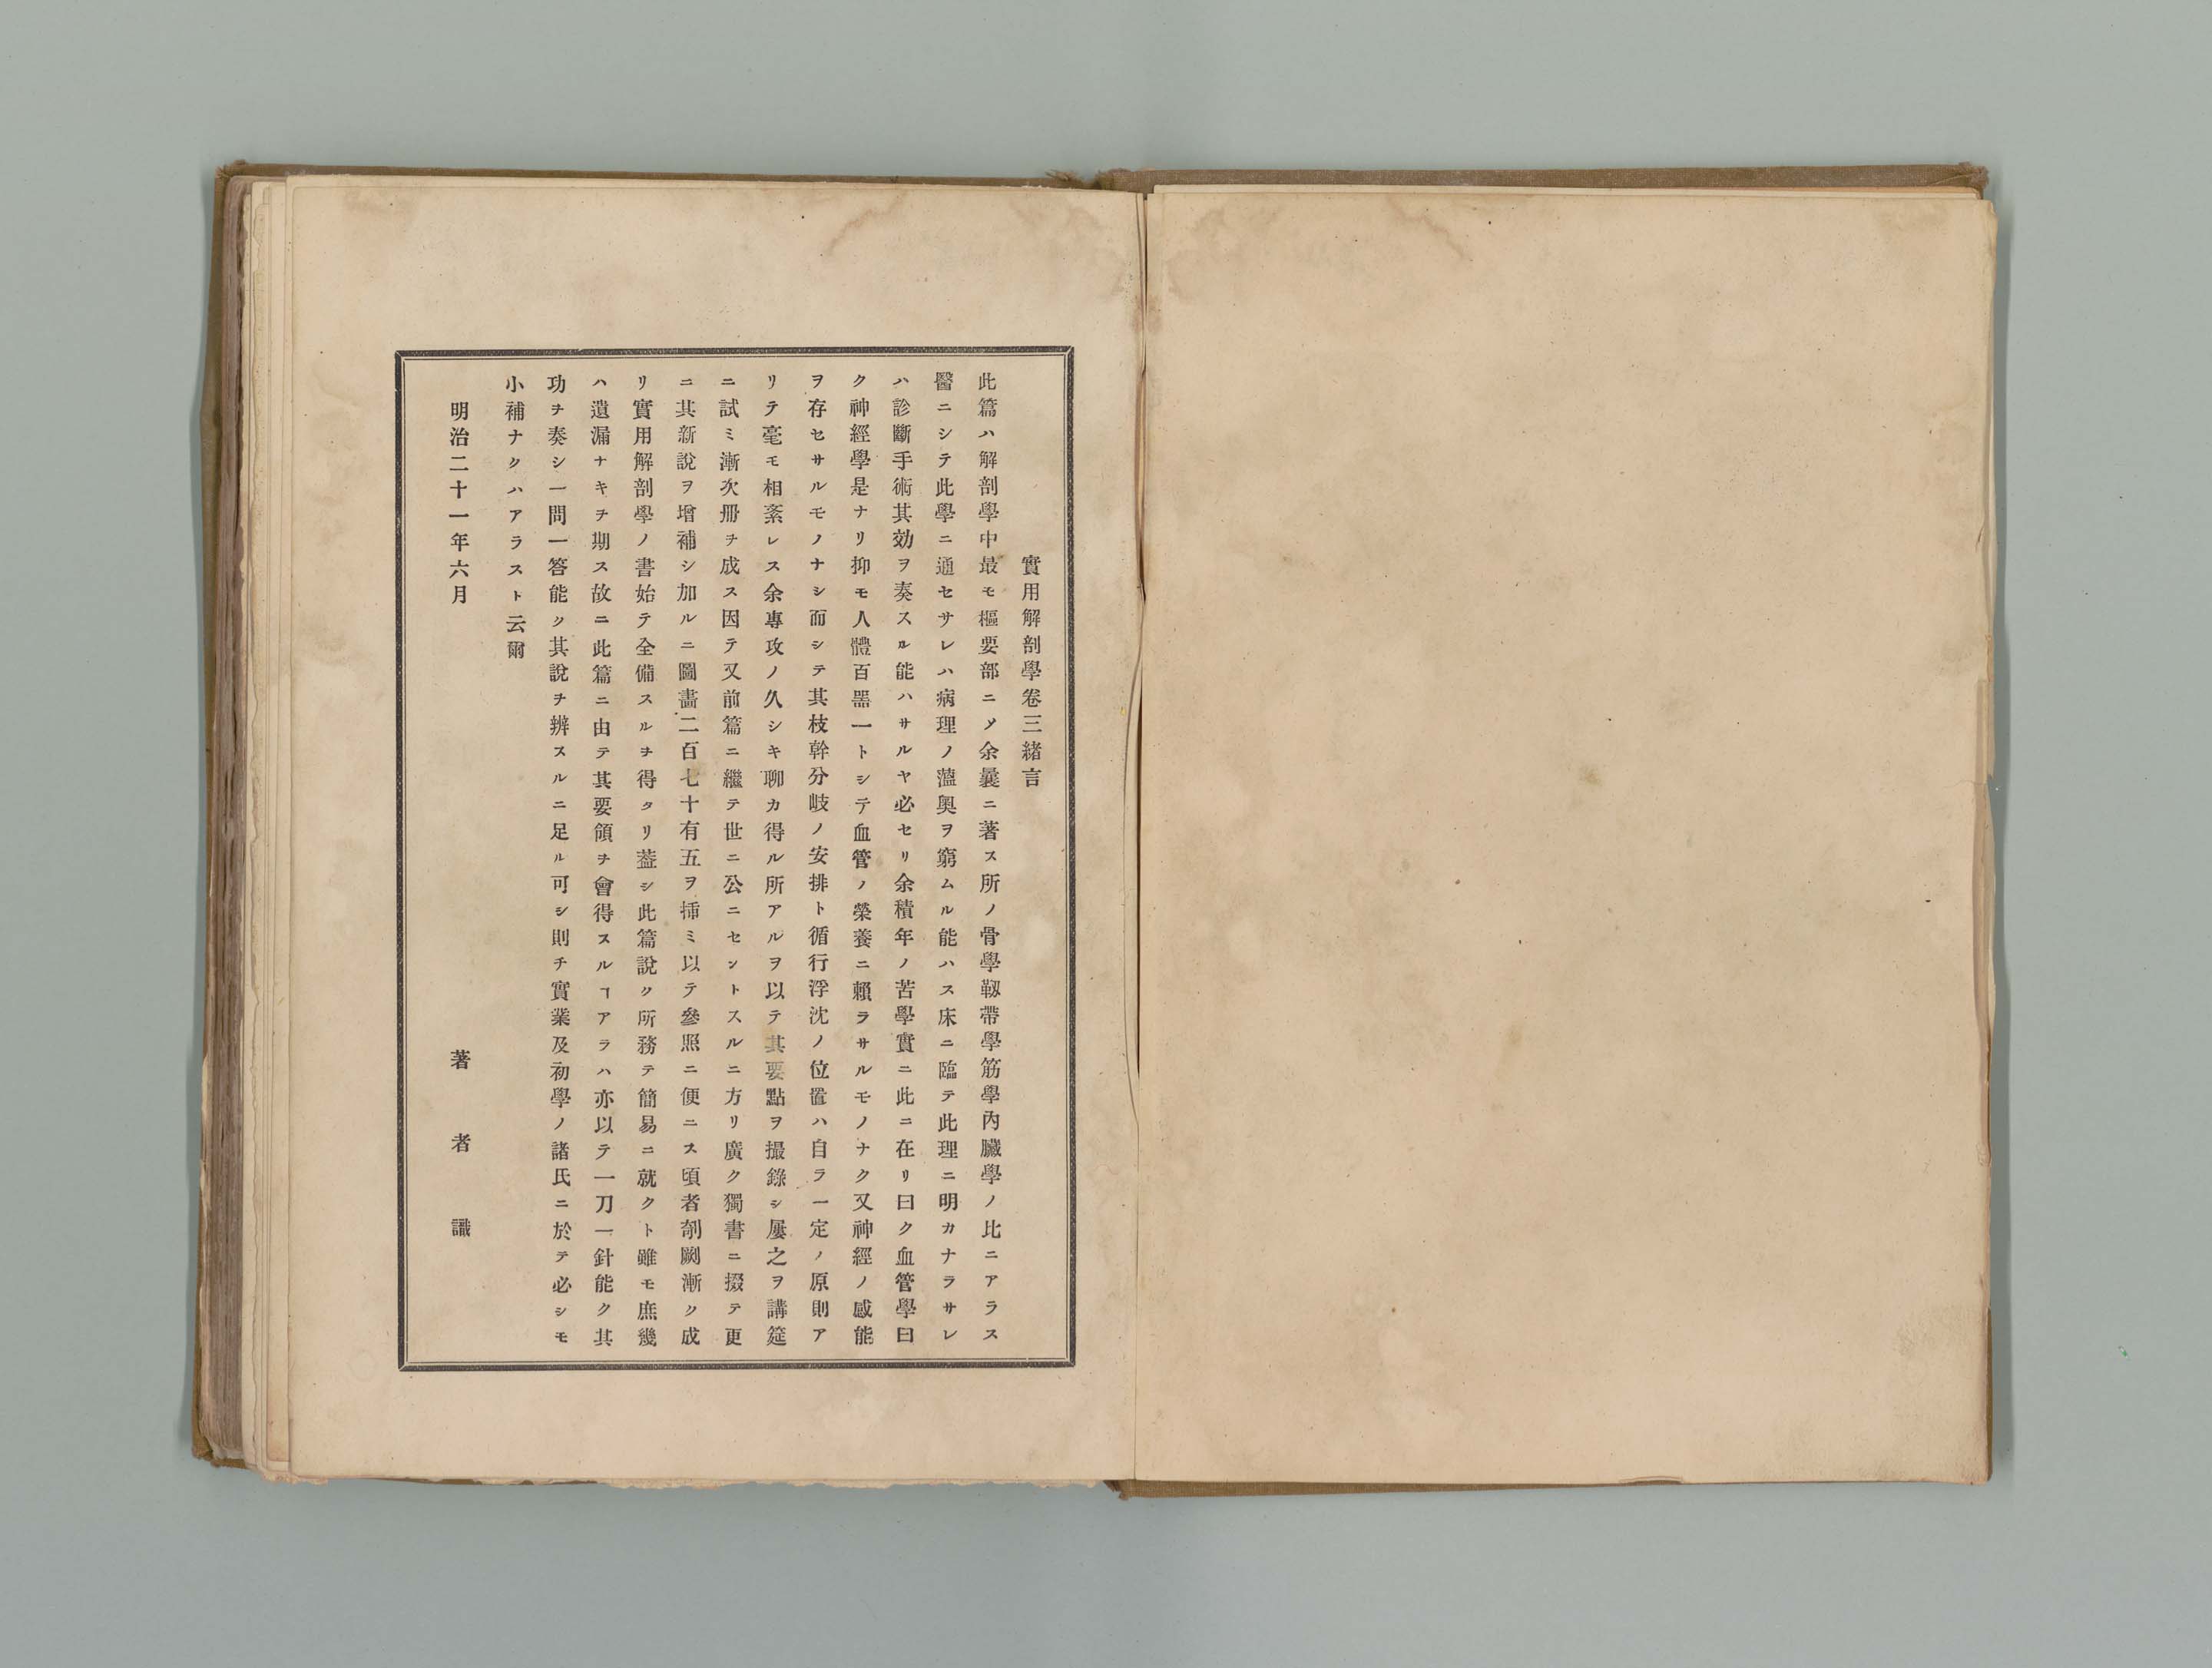 實用解剖學卷三緒言
此篇ハ解剖學中最モ樞要部ニノ余曩ニ著ス所ノ骨學靱帶學筋學內臟學ノ比ニアラス
醫ニシテ此學ニ通セサレハ病理ノ薀奧ヲ窮ムル能ハス床ニ臨テ此理ニ明カナラサレ
ハ診斷手術其効ヲ奏スル能ハサルヤ必セリ余積年ノ苦學實ニ此ニ在リ曰ク血管學曰
ク神經學是ナリ抑モ人體百噐一トシテ血管ノ榮養ニ賴ラサルモノナク又神經ノ感能
ヲ存セサルモノナシ而シテ其枝幹分岐ノ安排ト循行浮沈ノ位置ハ自ラ一定ノ原則ア
リテ毫モ相紊レス余專攻ノ久シキ聊カ得ル所アルヲ以テ其要點ヲ撮錄シ屢之ヲ講筵
ニ試ミ漸次册ヲ成ス因テ又前篇ニ繼テ世ニ公ニセントスルニ方リ廣ク獨書ニ掇テ更
ニ其新說ヲ增補シ加ルニ圖畵二百七十有五ヲ揷ミ以テ參照ニ便ニス頃者剞劂漸ク成
リ實用解剖學ノ書始テ全備スルヲ得タリ葢シ此篇說ク所務テ簡易ニ就クト雖モ庶幾
ハ遺漏ナキヲ期ス故ニ此篇ニ由テ其要領ヲ會得スルヿアラハ亦以テ一刀一針能ク其
功ヲ奏シ一問一答能ク其說ヲ辨スルニ足ル可シ則チ實業及初學ノ諸氏ニ於テ必シモ
小補ナクハアラスト云爾
明治二十一年六月
著者識